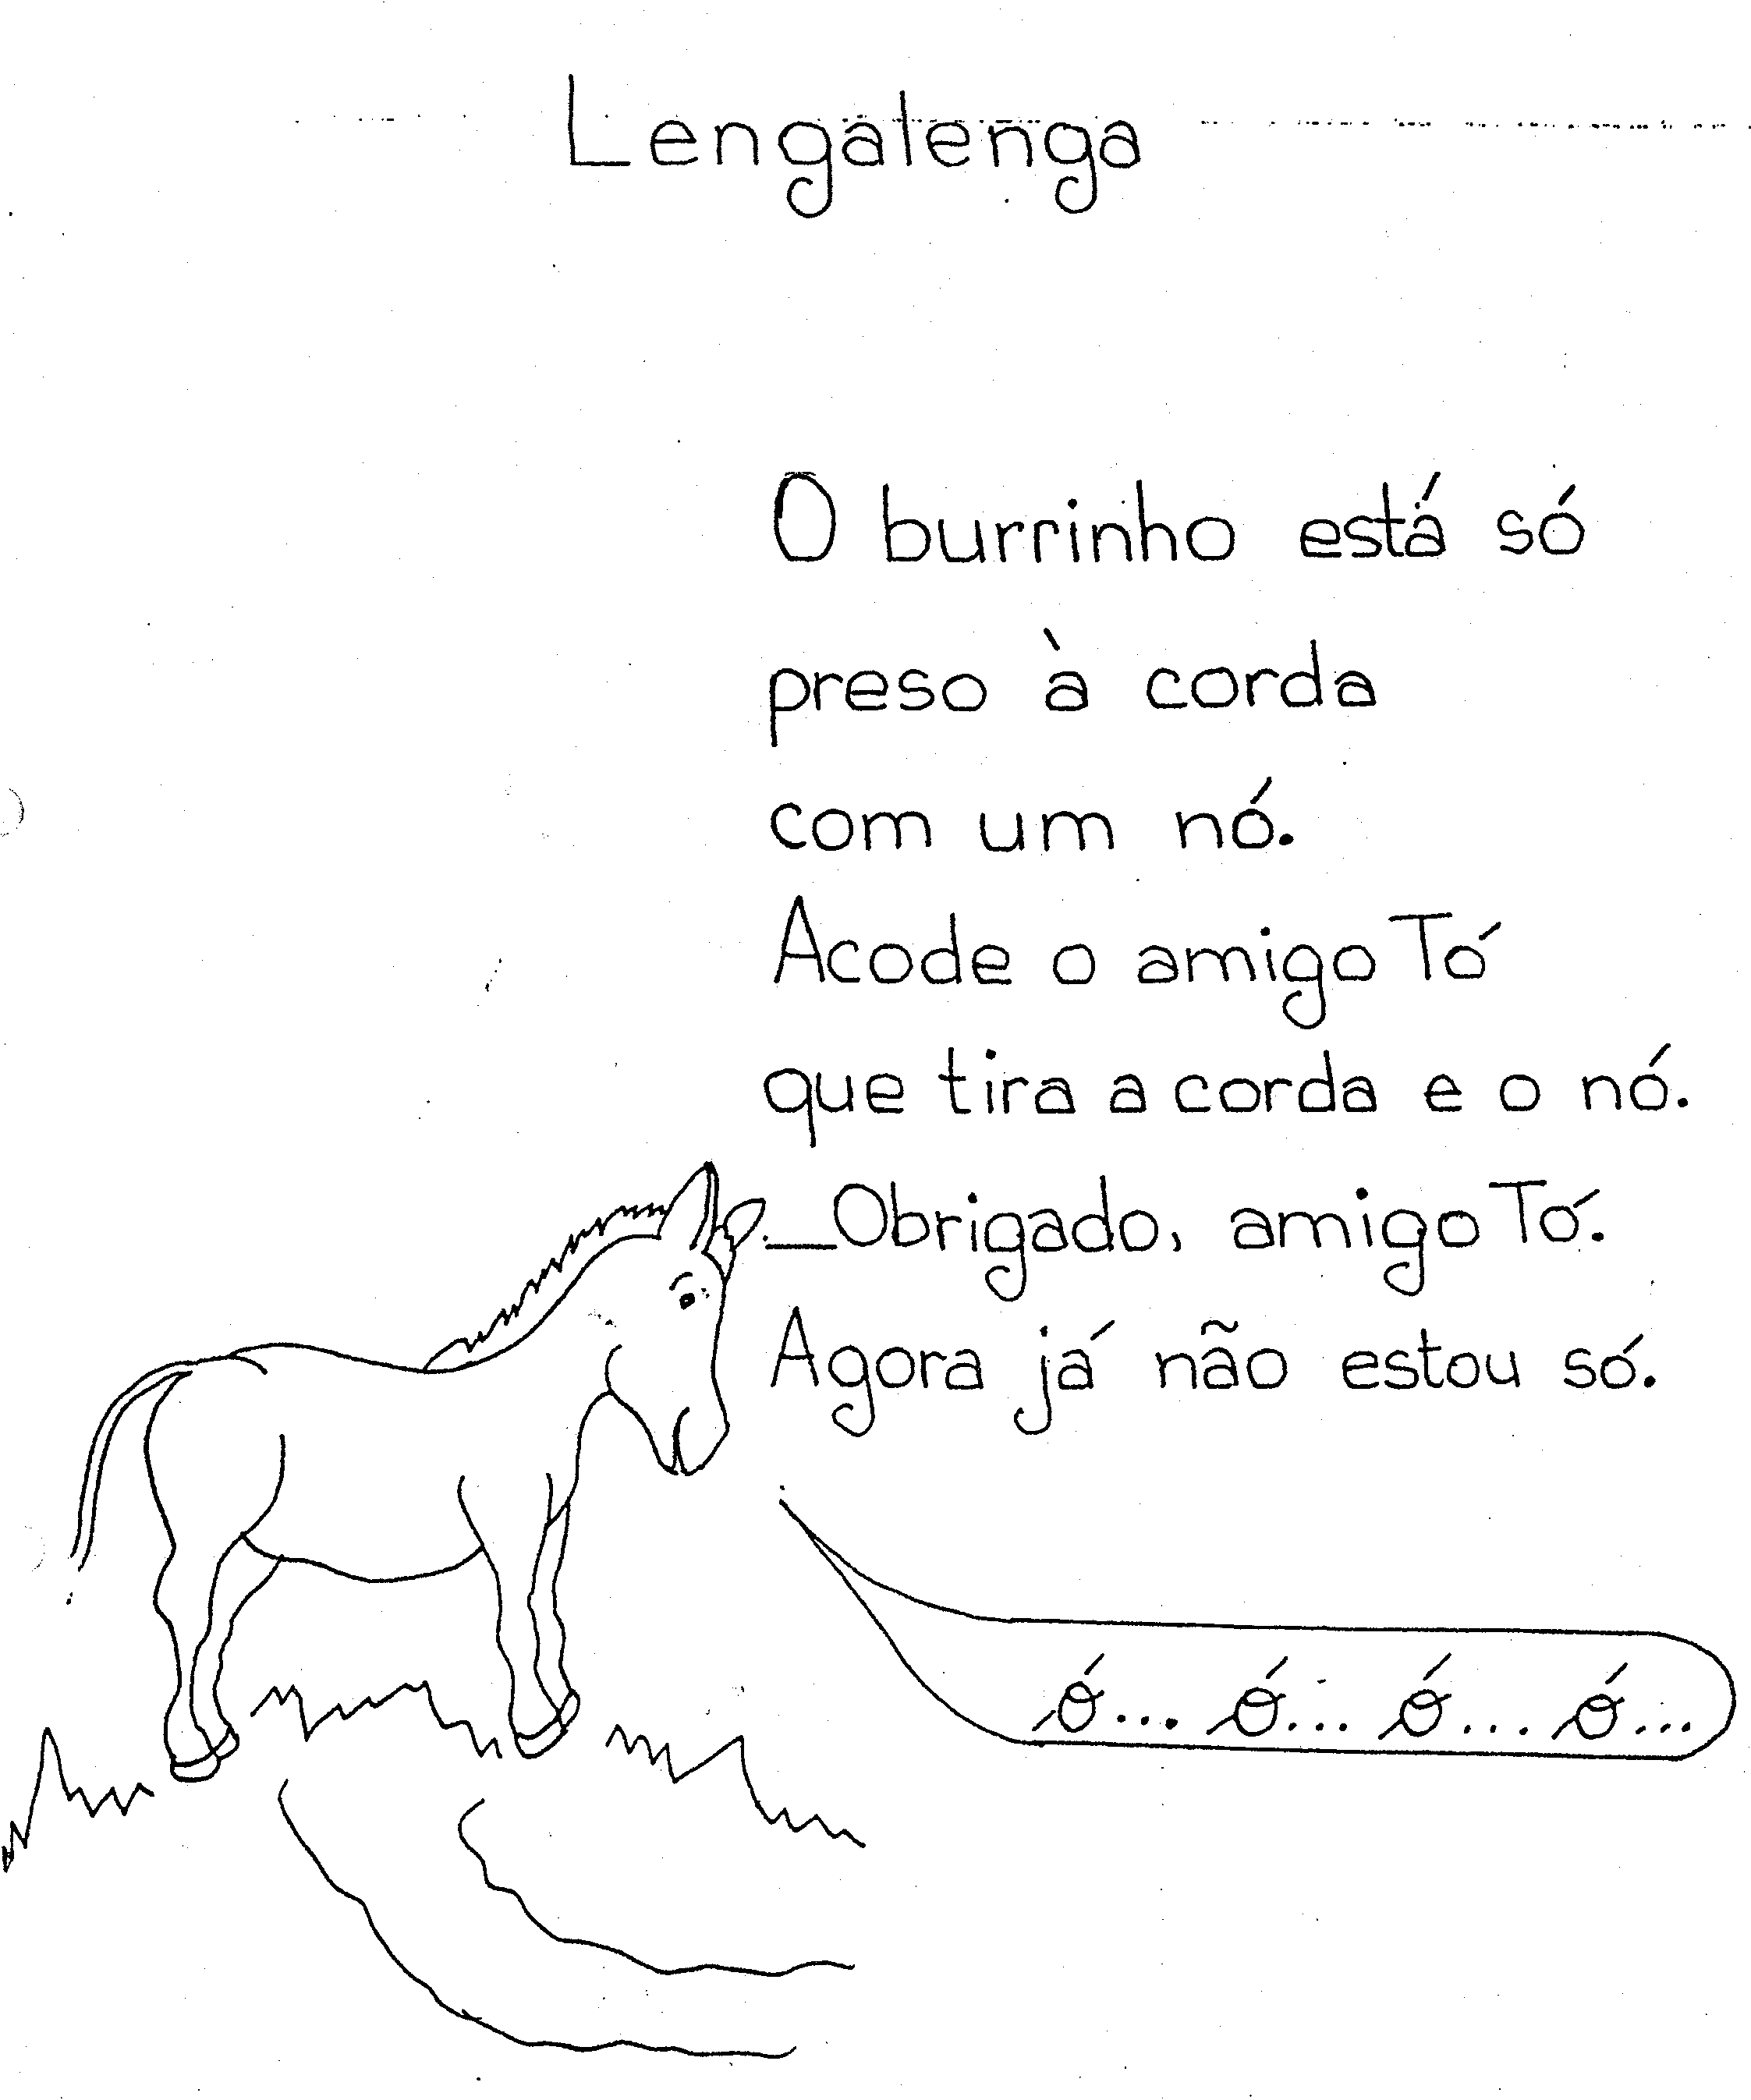 Lengalenga
O burrinho está só
preso à corda
com um nó.
Acode o amigo Tó
que tira a corda e o nó.
_Obrigado, amigo Tó.
Agora já não estou só.
ó... ó... ó... ó...